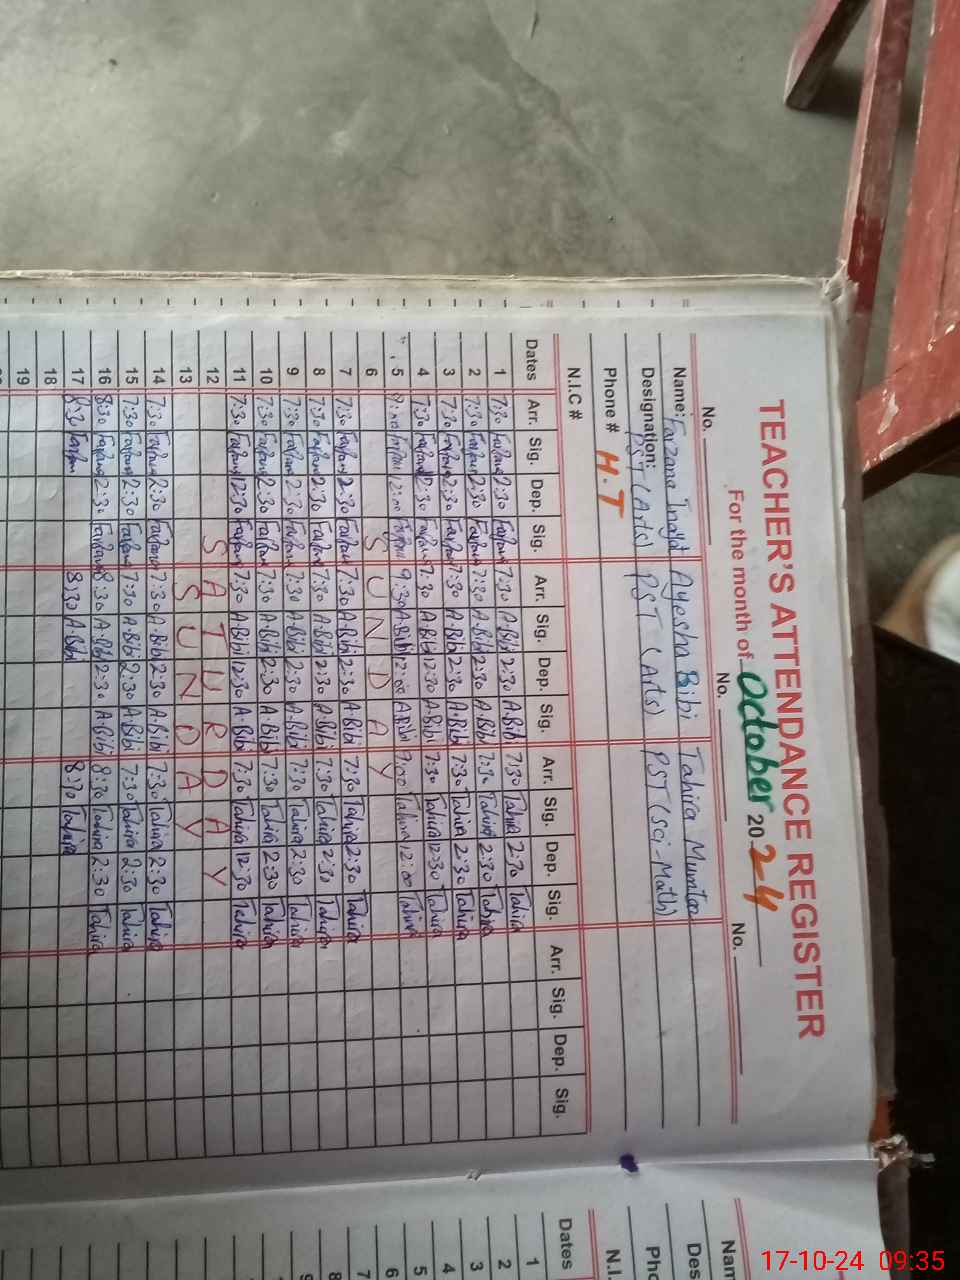 TEACHER'S ATTENDANCE REGISTER
For the month of October 2024
No. No. No.
Name: Farzana Ayesha Bibi Tahira Mumtaz
Designation: PST (Arts) PST (Arts) PST (Sci-Math)
Phone # H.T
N.I.C #
Dates Arr. Sig. Dep. Sig. Arr. Sig. Dep. Sig. Arr. Sig. Dep. Sig. Arr. Sig. Dep. Sig.
1 7:30 2:30 7:30 A.Bibi 2:30 A.Bibi 7:30 Tahira 2:30 Tahira
2 7:30 2:30 7:30 A.Bibi 2:30 A.Bibi 7:30 Tahira 2:30 Tahira
3 7:30 2:30 7:30 A.Bibi 2:30 A.Bibi 7:30 Tahira 2:30 Tahira
4 7:30 12:30 7:30 A.Bibi 12:30 A.Bibi 7:30 Tahira 12:30 Tahira
5 12:00 9:30 A.Bibi 12:00 A.Bibi 9:00 Tahira 12:00 Tahira
6 SUNDAY
7 7:30 2:30 7:30 A.Bibi 2:30 A.Bibi 7:30 Tahira 2:30 Tahira
8 7:30 2:30 7:30 A.Bibi 2:30 A.Bibi 7:30 Tahira 2:30 Tahira
9 7:30 2:30 7:30 A.Bibi 2:30 A.Bibi 7:30 Tahira 2:30 Tahira
10 7:30 2:30 7:30 A.Bibi 2:30 A.Bibi 7:30 Tahira 2:30 Tahira
11 7:30 12:30 7:30 A.Bibi 12:30 A.Bibi 7:30 Tahira 12:30 Tahira
12 SATHURDAY
13 SUNDAY
14 7:30 2:30 7:30 A.Bibi 2:30 A.Bibi 7:30 Tahira 2:30 Tahira
15 7:30 2:30 7:30 A.Bibi 2:30 A.Bibi 7:30 Tahira 2:30 Tahira
16 8:30 2:30 8:30 A.Bibi 2:30 A.Bibi 8:30 Tahira 2:30 Tahira
17 8:30 8:30 A.Bibi 8:30 Tahira
18
19
Nam
Des
Pho
N.I.
Dates
1
2
3
4
5
6
7
8
17-10-24 09:35